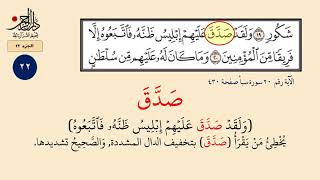 الجزء ٢٢
٢٢
شَكُورٍ ١٩ وَلَقَدْ صَدَّقَ عَلَيْهِمْ إِبْلِيسُ ظَنَّهُ فَاتَّبَعُوهُ إِلَّا
فَرِيقًا مِّنَ الْمُؤْمِنِينَ ٢٠ وَمَا كَانَ لَهُ عَلَيْهِم مِّن سُلْطَانٍ
الآية رقم ٢٠ سورة سبأ صفحة ٤٣٠
صَدَّقَ
(وَلَقَدْ صَدَّقَ عَلَيْهِمْ إِبْلِيسُ ظَنَّهُ فَاتَّبَعُوهُ)
يُخْطِئُ مَنْ يَقْرَأُ (صَدَّقَ) بتخفيف الدال المشددة, وَالصَّحِيحُ تشديدها.